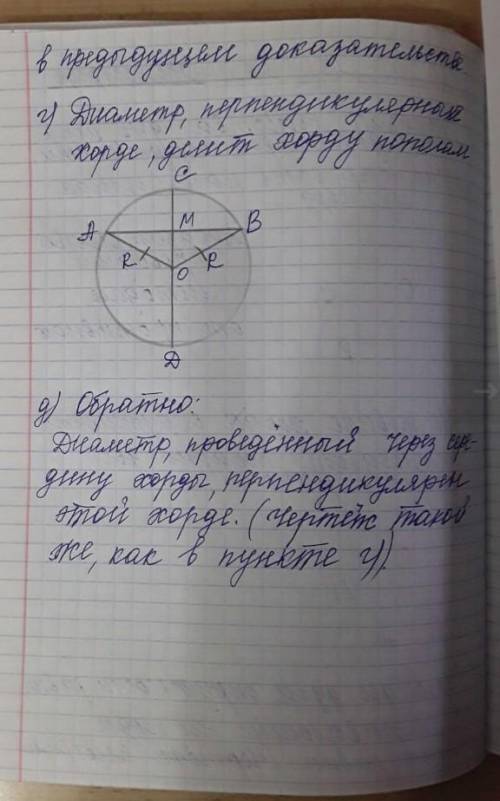 в предыдущем доказательстве.
г) Диаметр, перпендикулярный
хорде, делит хорду пополам
C
A M B
R O R
D
д) Обратно:
Диаметр, проведённый через сере-
дину хорды, перпендикулярен
этой хорде. (Чертёж такой
же, как в пункте г)).